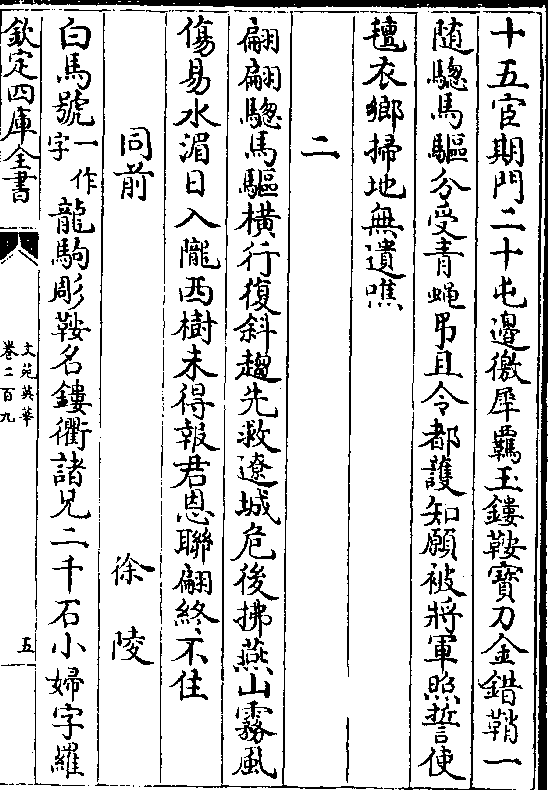 十五宦期門二十屯邊徼犀覊玉鏤鞍寳刀金錯鞘一
随驄馬驅分受青蝇弔且令都護知願被將軍照誓使
氊衣鄉掃地無遺噍
二
翩翩驄馬驅横行復斜趨先救遼城危後拂燕山霧風
傷易水湄日入隴西樹未得報君恩聯翩終不住
同前 徐陵
白馬號一作字龍駒彫鞍名鏤衢諸兄二千石小婦字羅
欽定四庫全書
文苑英華
卷二百九
五